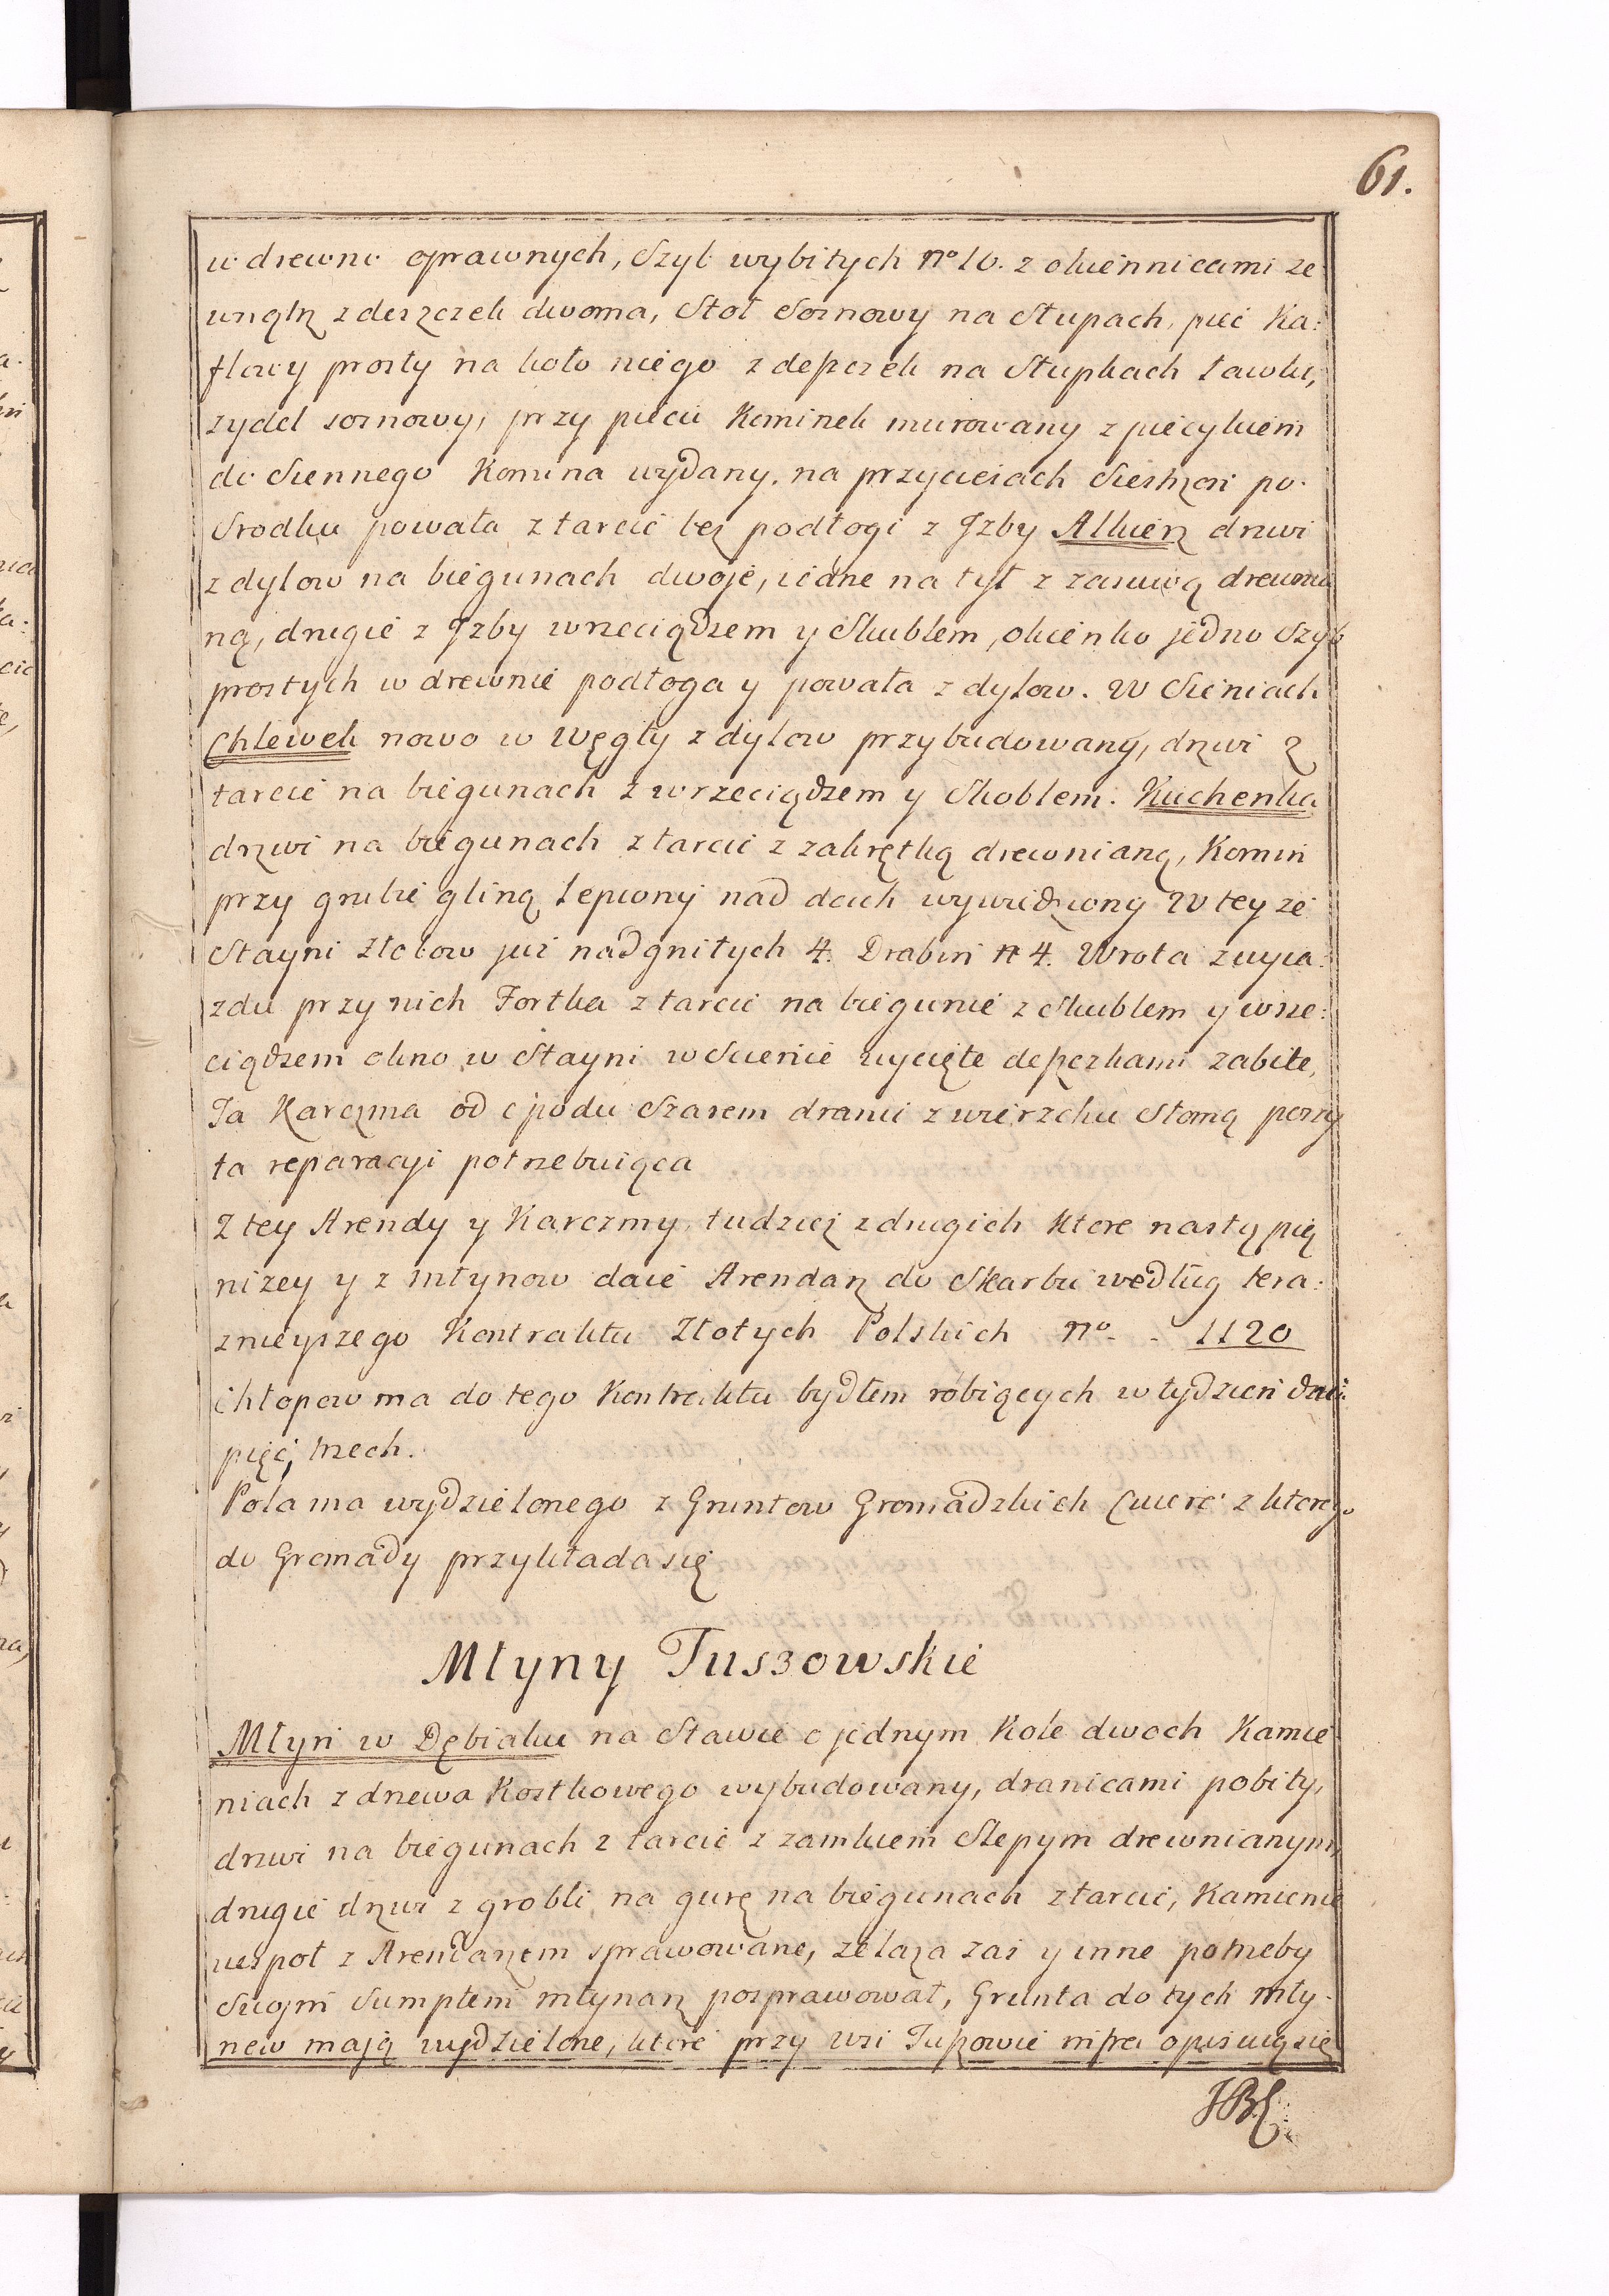 61.
w drewno oprawnych, Szyb wybitych no 10. z okiennicami ze
wnątrz z deszczek dwoma, Stoł Sosnowy na Słupach, piec Ka:
flowy prosty na koło niego z deszczek na Słupkach Ławki,
zydel sosnowy, przy piecu Kominek murowany z piecykiem
do Siennego Komina wydany, na przycieiach Siestrzan po
Srodku powała z tarcic bez podłogi z Jzby Alkierz drzwi
z dylow na biegunach dwoje, iedne na tył z zasuwą drewnia
ną, drugie z Jzby wrzeciądzem y Skublem, okienko jedno Szyb
prostych w drewnie podłoga y powała z dylow. W Sieniach
Chlewek nowo w Węgły z dylow przybudowany, drzwi z
tarcic na biegunach z wrzeciądzem y Skoblem. Kuchenka
drzwi na biegunach z tarcic z zakrętką drewnianą, Komin
przy grubie gliną Lepiony nad dach wywiedziony W tey ze
Stayni Złobow już nadgnitych 4. Drabin n 4. Wrota z wyia:
zdu przy nich Fortka z tarcic na biegunie z Skublem y wrze:
ciądzem okno w Stayni w Scienie wycięte deszczkami zabite,
Ta Karczma od spodu Szarem dranic z wierzchu Słomą poszy
ta reparacyi potrzebuiąca
Z tey Arendy y Karczmy tudziez z drugich Ktore nastąpią
nizey y z młynow daie Arendarz do Skarbu według tera:
znieyszego Kontraktu Złotych Polskich no. . 1120
Chłopow ma do tego Kontraktu bydłem robiących w tydzien dni
pięć, trzech.
Pola ma wydzielonego z Gruntow Gromadzkich Cwierc z ktorego
do Gromady przykłada się
Młyny Tuszowskie
Młyn w Dębiaku na Stawie o jednym Kole dwoch Kamie
niach z drzewa Kostkowego wybudowany, dranicami pobity,
drzwi na biegunach z tarcic z zamkiem Slepym drewnianym,
drugie drzwi z grobli na gurę na biegunach z tarcic, Kamienie
wespoł z Arendarzem sprawowane, zelaza zas y inne potrzeby
Swojm Sumptem młynarz posprawował, Grunta do tych mły
now mają wydzielone, ktore przy wsi Tuszowie infra opisuią się